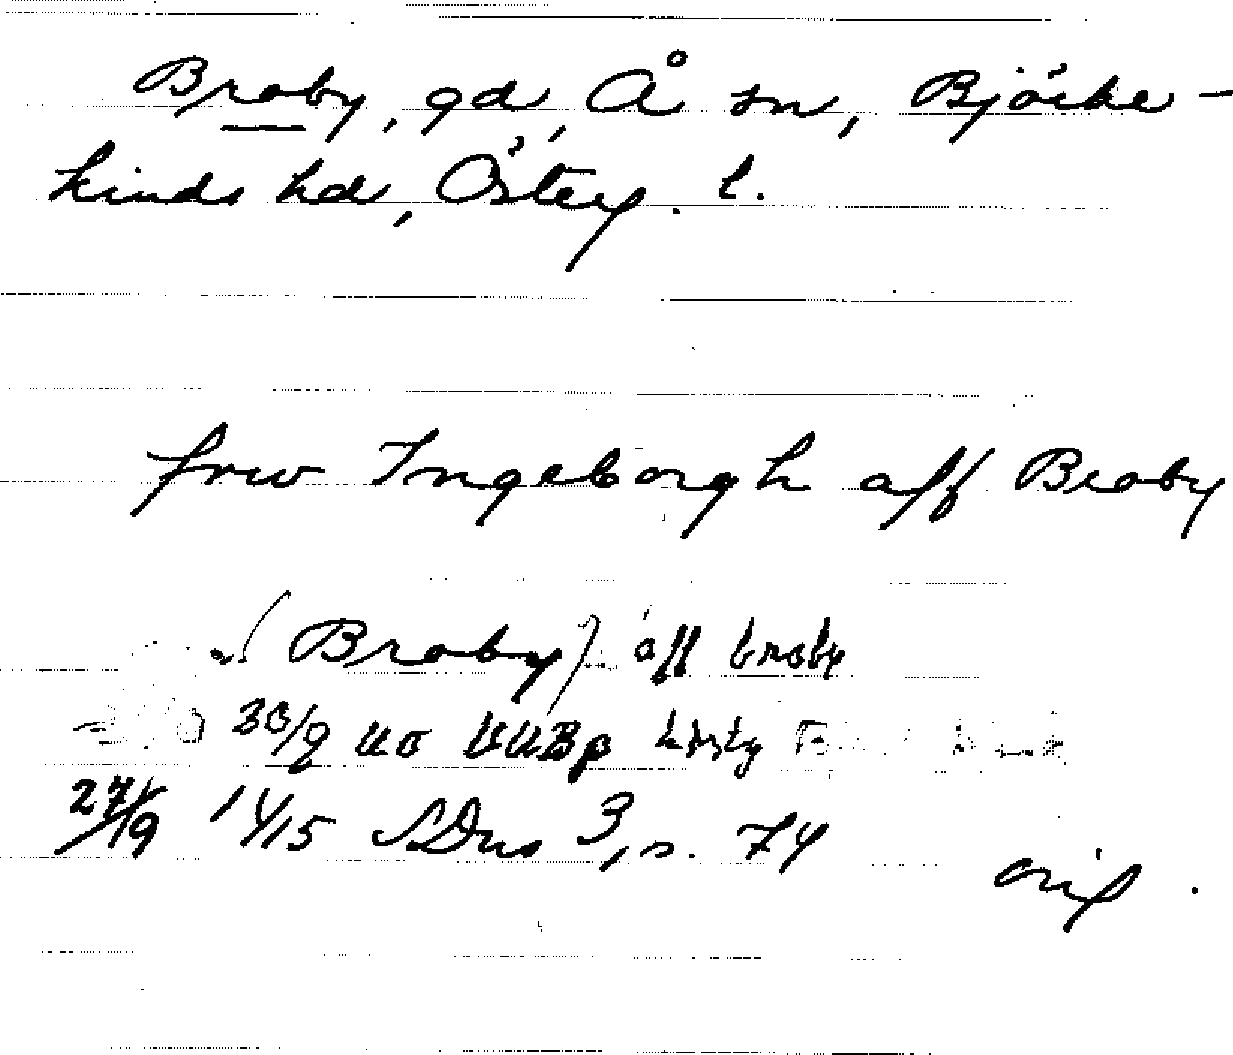 Broby, gd, Å sn, Björke-
kinds hd, Österg. l.
frw Ingeborgh aff Broby
(Broby) aff broby
30/9
27/9 1415 SDns 3, s. 74
orig.